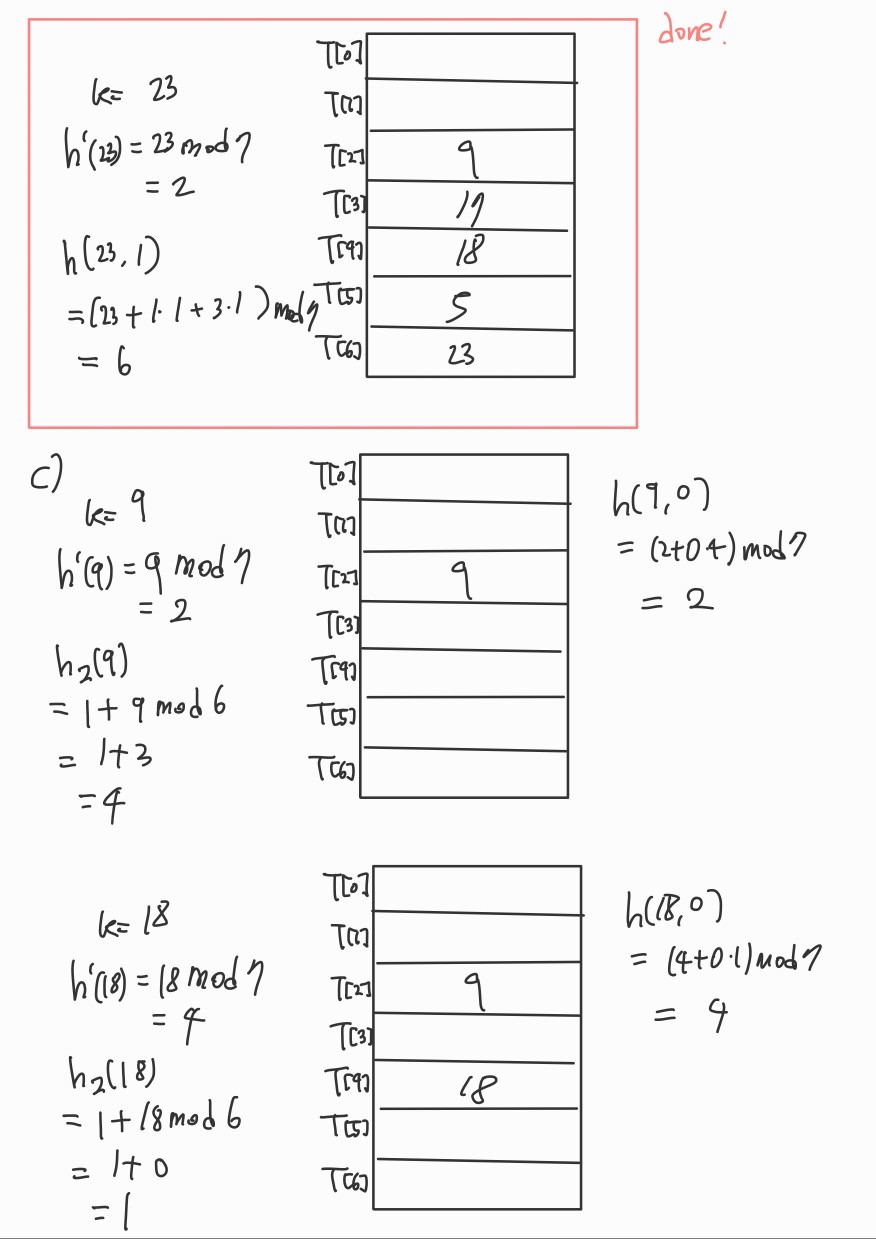 done!
k= 23
h'(23) = 23 mod 7
= 2
h(23, 1)
= (23 + 1·1 + 3·1) mod 7
= 6
T[0]
T[1]
T[2] 9
T[3] 17
T[4] 18
T[5] 5
T[6] 23
c)
k= 9
h'(9) = 9 mod 7
= 2
h₂(9)
= 1 + 9 mod 6
= 1+3
= 4
T[0]
T[1]
T[2] 9
T[3]
T[4]
T[5]
T[6]
h(9,0)
= (2+0·4) mod 7
= 2
k= 18
h'(18) = 18 mod 7
= 4
h₂(18)
= 1 + 18 mod 6
= 1+ 0
= 1
T[0]
T[1]
T[2] 9
T[3]
T[4] 18
T[5]
T[6]
h(18,0)
= (4+0·1) mod 7
= 4